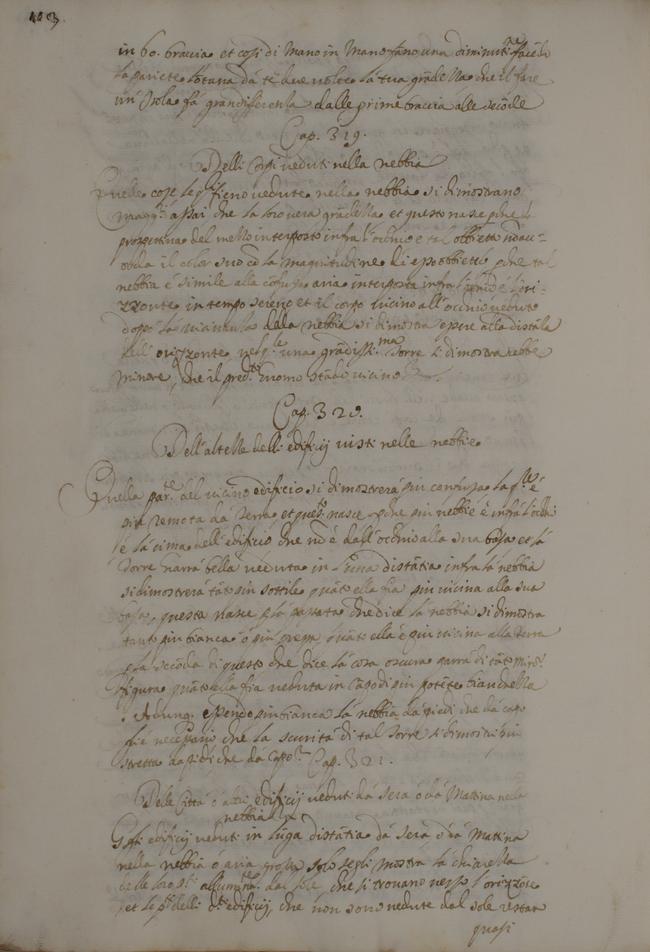 in 60. braccia et cosi di Mano in Mano fano una diminuti.ne facēdo
la pariete lotana da te due uolte la tua grādezza che il fare
un' sola fa gran differenza dalle prime braccia alle secōde
Cap. 319.
Delli Corpi ueduti nella nebbia
Quelle cose le qli fieno uedute nella nebbia si dimostrano
magg.ri assai che la loro uera grādezza et questo nasce pche la
prospettiua del mezzo interposto infra l'occhio e tal obbietto nō ac-
corda il color suo cō la magnitudine di esso obbietto pche tal
nebbia è simile alla cōfusa aria interposta infra l'occhio e l'ori-
zzonte in tempo sereno et il corpo uicino all'occhio ueduto
dopo la uicinità della nebbia si dimostra essere alla distāza
dell' orizzonte nel q.le una grādiss.ma Torre si dimostrarebbe
minore, che il pred.to huomo stādo uicino
Cap. 320.
Dell'altezze delli edificij uisti nelle nebbie
Quella par.te del uicino edificio si dimostrerà piu confusa la q.le è
piu remota da terra et questo nasce pche piu nebbia è infra l'occhio
e la cima dell'edificio che nō è dall'occhio alla sua basa et la
Torre parrà bella ueduta in luna distātia infra la nebbia
si dimostrerà tāto piu sottile quāto ella fia piu uicina alla sua
basa, questo nasce p la passata che dice la nebbia si dimostra
tanto piu bianca o piu spessa quāto ella è piu uicina alla terra
e p la secōda di questo che dice la cosa oscura parrà di tāto minor
figura quāto ella fia ueduta in cāpo di piu potēte bianchezza
. Adunq. essendo piu bianca la nebbia da piedi che da capo
fie necessario che la scurità di tal Torre si dimostri piu
stretta da piedi che da Capo. Cap. 321.
Delle Città o altri edificij ueduti da sera o da Mattina nella
nebbia
Gli edificij ueduti in lūga distātia da sera o da Mattina
nella nebbia o aria grossa solo segli mostra la chiarezza
delle loro p.ti allumin.te dal sole che si trouano uerso l'orizzōte
et le p.ti delli d.ti edificij, che non sono uedute dal sole restar
quasi